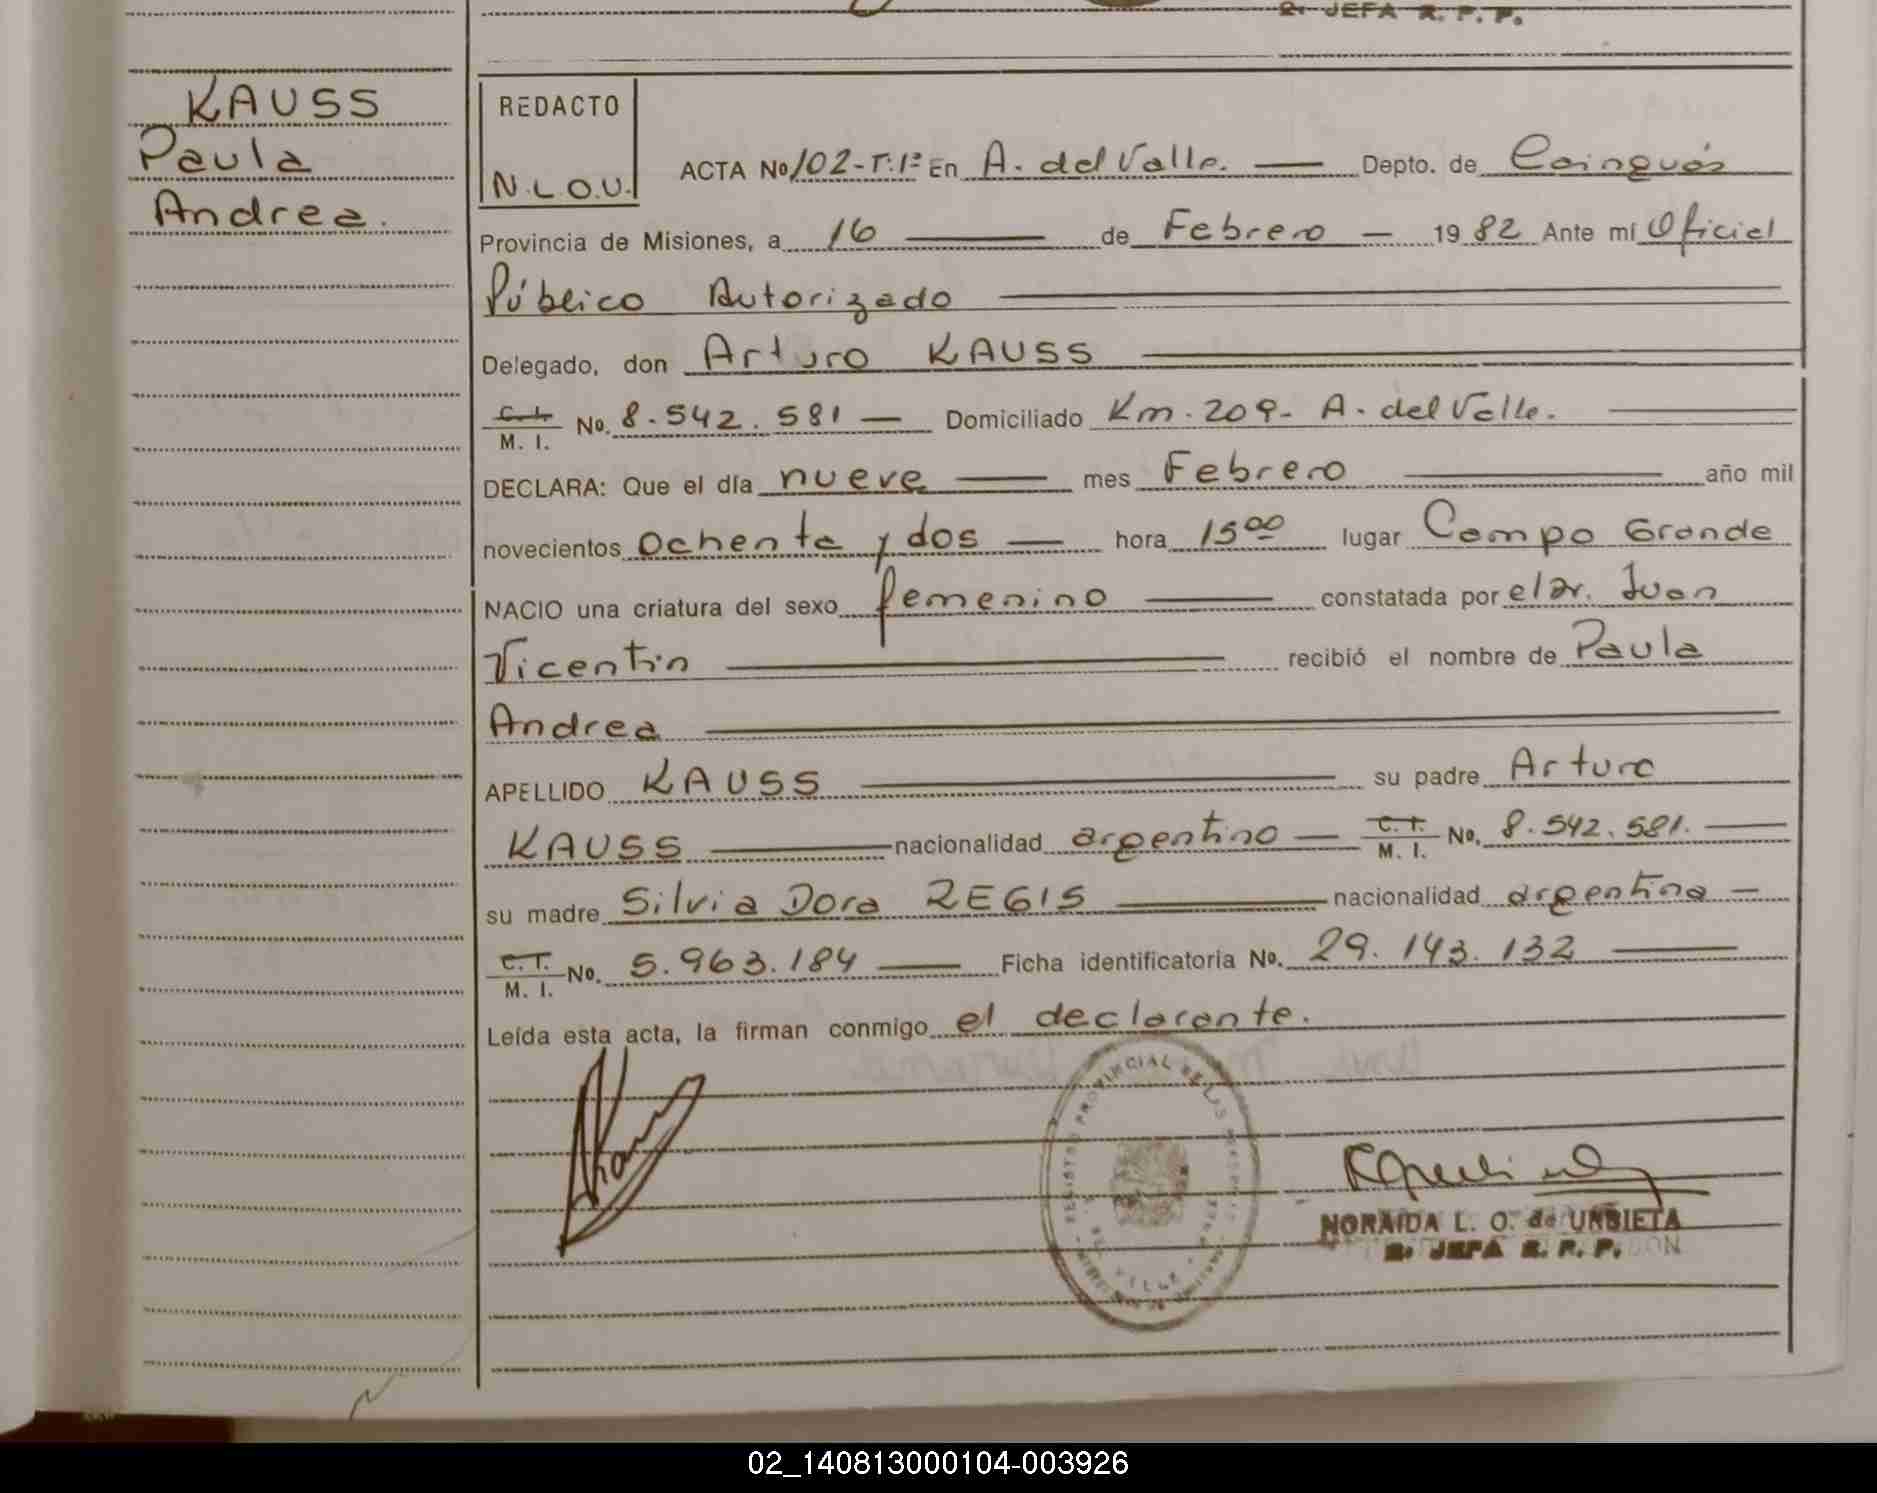 2. JEFA R. P. P.
KAUSS
Paula
Andrea.
REDACTO
N.L.O.U.
ACTA No 102-T:1º En A. del Valle. Depto. de Cainguás
Provincia de Misiones, a 16 de Febrero - 19 82 Ante mí Oficial
Público Autorizado
Delegado, don Arturo KAUSS
C. I. M. I. No. 8.542.581 - Domiciliado Km. 209- A. del Valle.
DECLARA: Que el día nueve mes Febrero año mil
novecientos ochenta y dos hora 15 00 lugar Campo Grande
NACIO una criatura del sexo femenino constatada por el Dr. Juan
Vicentin recibió el nombre de Paula
Andrea
APELLIDO KAUSS su padre Arturo
KAUSS nacionalidad argentino C. I. M. I. No. 8.542.581.
su madre Silvia Dora REGIS nacionalidad argentina
C. I. M. I. No. 5.963.184 Ficha identificatoria No. 29.143.132
Leída esta acta, la firman conmigo el declarante.
REGISTRO PROVINCIAL DE LAS PERSONAS
NORAIDA L. O. de URBIETA
2. JEFA R. P. P.
02_140813000104-003926